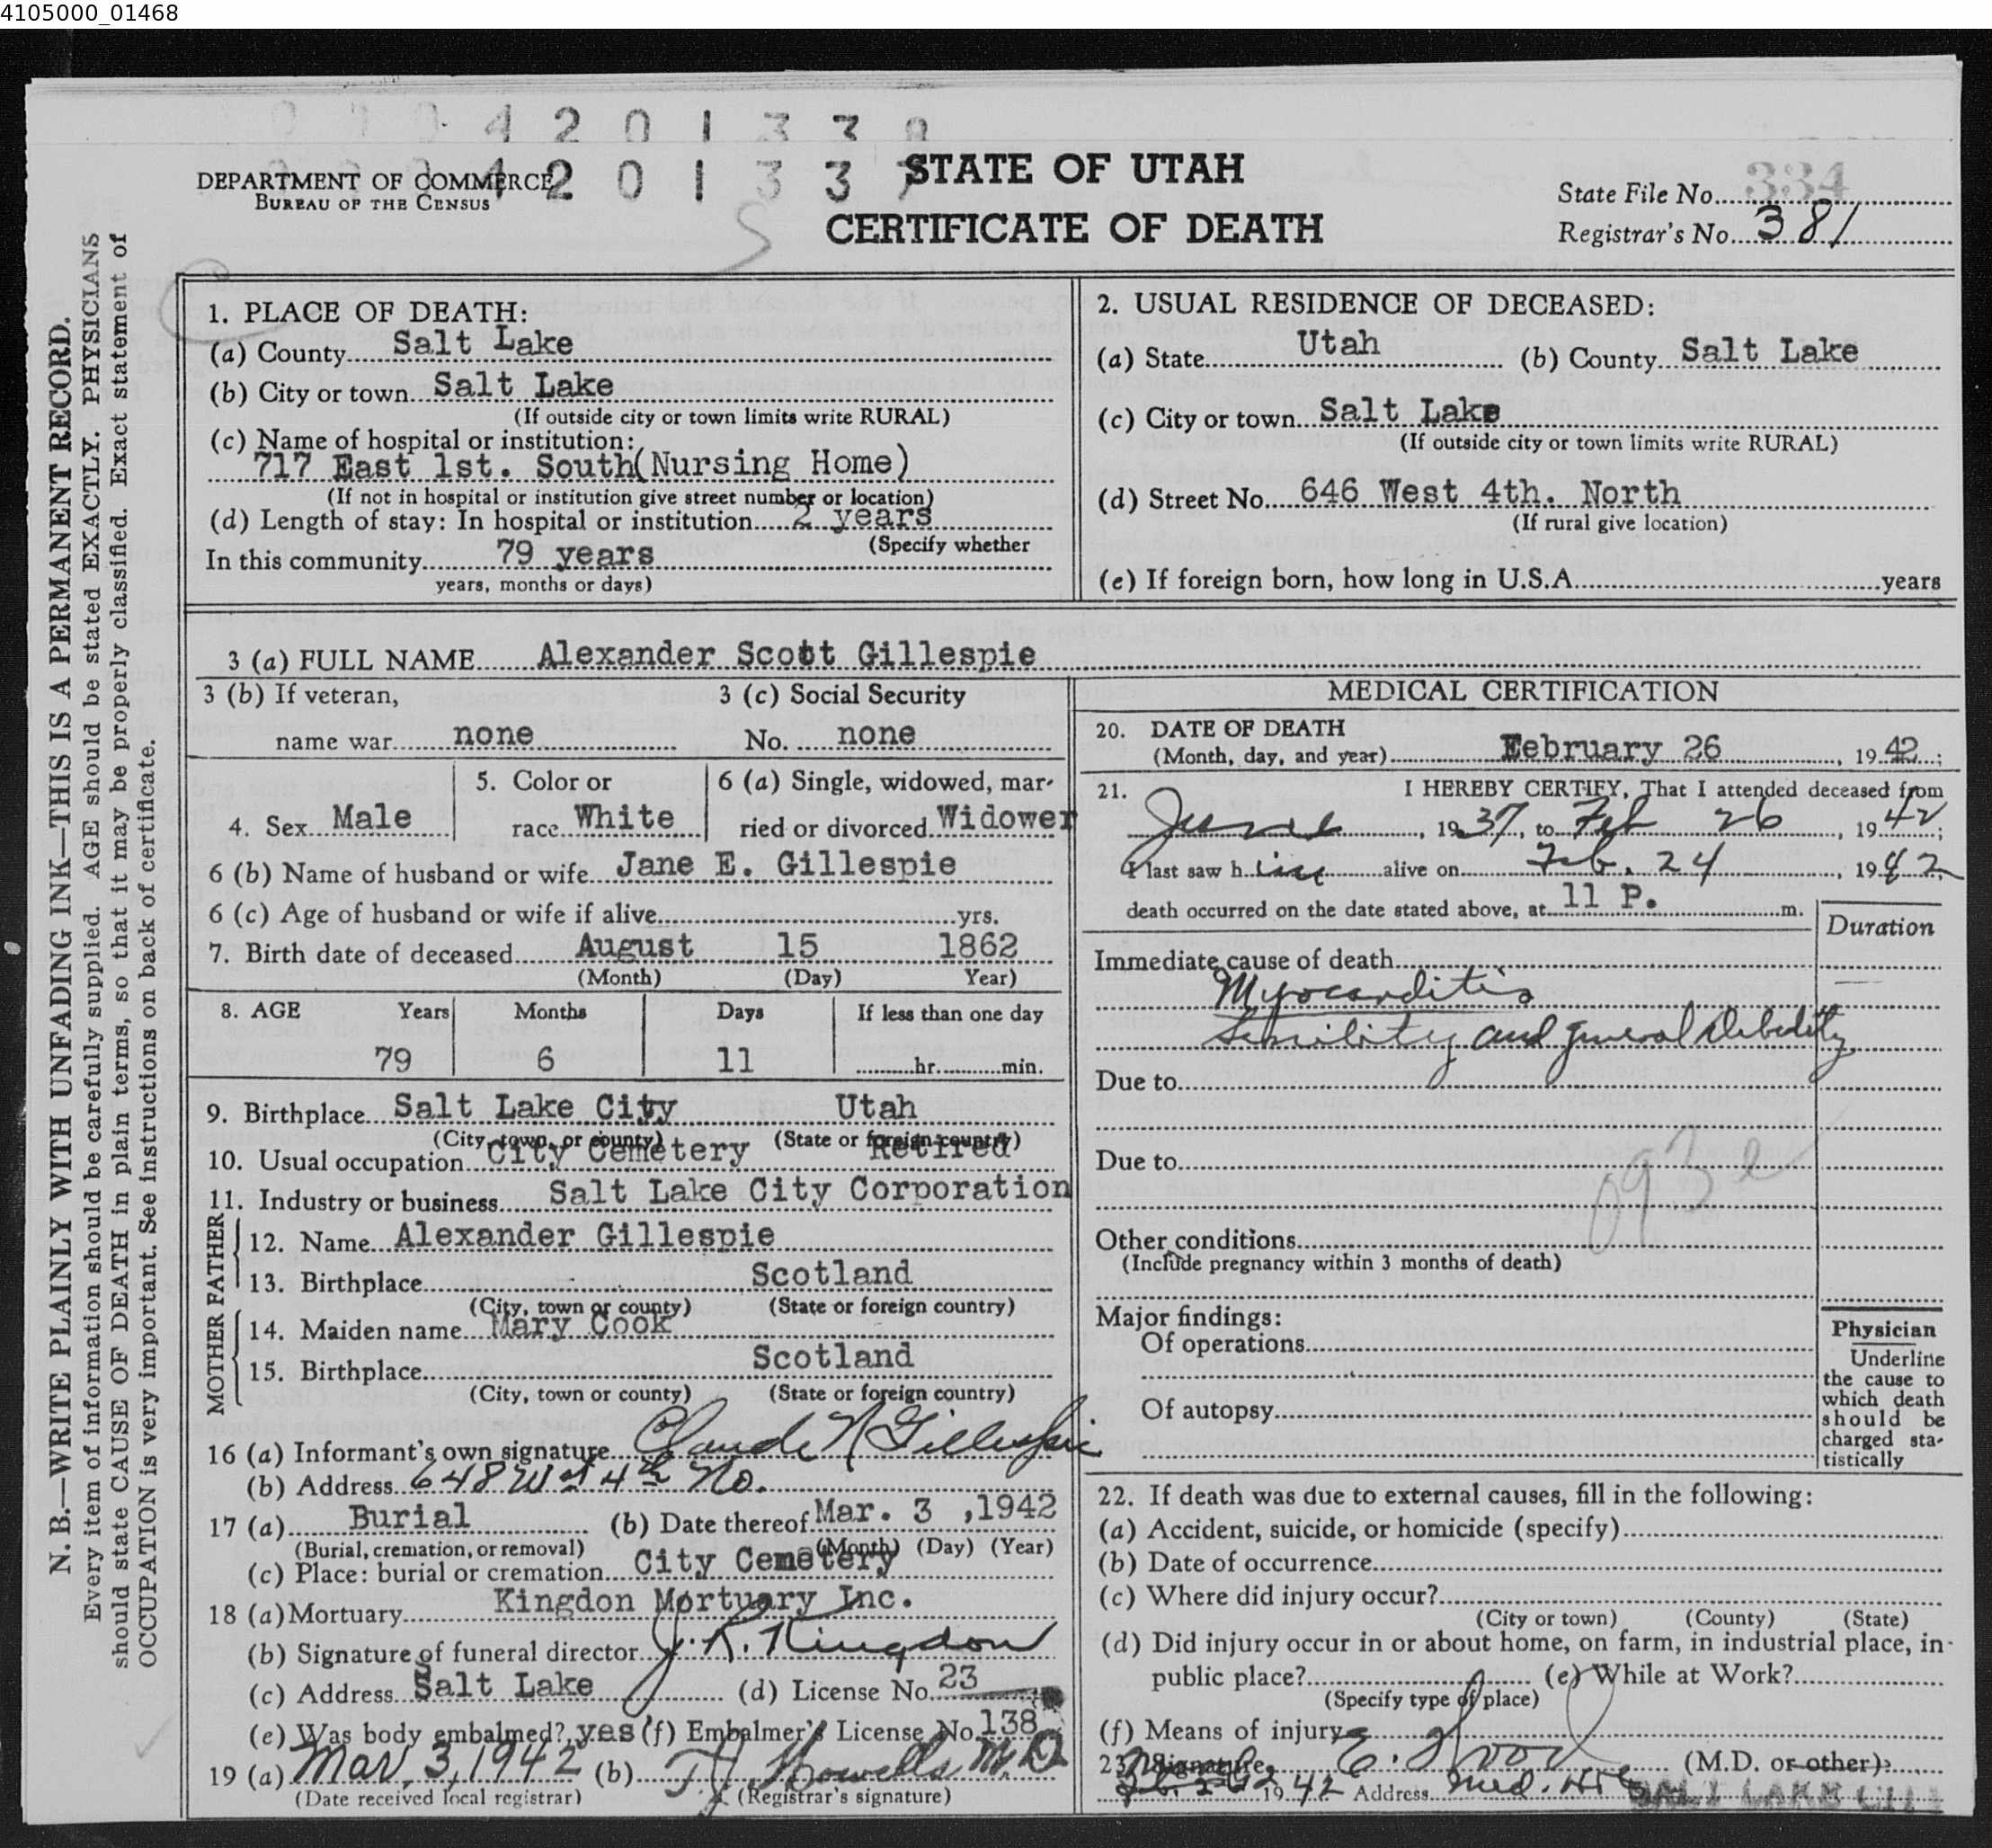 4105000_01468
4 2 0 1 3 3 8
4 2 0 1 3 3 7
DEPARTMENT OF COMMERCE
BUREAU OF THE CENSUS
STATE OF UTAH
CERTIFICATE OF DEATH
State File No. 334
Registrar's No. 381
N. B.—WRITE PLAINLY WITH UNFADING INK—THIS IS A PERMANENT RECORD.
Every item of information should be carefully supplied. AGE should be stated EXACTLY. PHYSICIANS
should state CAUSE OF DEATH in plain terms, so that it may be properly classified. Exact statement of
OCCUPATION is very important. See instructions on back of certificate.
1. PLACE OF DEATH:
(a) County Salt Lake
(b) City or town Salt Lake
(If outside city or town limits write RURAL)
(c) Name of hospital or institution:
717 East 1st. South(Nursing Home)
(If not in hospital or institution give street number or location)
(d) Length of stay: In hospital or institution 2 years
(Specify whether
In this community 79 years
years, months or days)
2. USUAL RESIDENCE OF DECEASED:
(a) State Utah (b) County Salt Lake
(c) City or town Salt Lake
(If outside city or town limits write RURAL)
(d) Street No. 646 West 4th. North
(If rural give location)
(e) If foreign born, how long in U.S.A. years
3 (a) FULL NAME Alexander Scott Gillespie
3 (b) If veteran, 3 (c) Social Security
name war none No. none
4. Sex Male 5. Color or race White 6 (a) Single, widowed, married or divorced Widower
6 (b) Name of husband or wife Jane E. Gillespie
6 (c) Age of husband or wife if alive yrs.
7. Birth date of deceased August 15 1862
(Month) (Day) Year)
8. AGE Years Months Days If less than one day
79 6 11 hr. min.
9. Birthplace Salt Lake City Utah
(City, town, or county) (State or foreign country)
10. Usual occupation City Cemetery Retired
11. Industry or business Salt Lake City Corporation
FATHER
12. Name Alexander Gillespie
13. Birthplace Scotland
(City, town or county) (State or foreign country)
MOTHER
14. Maiden name Mary Cook
15. Birthplace Scotland
(City, town or county) (State or foreign country)
16 (a) Informant's own signature Claude N Gillespie
(b) Address 648 West 4th No.
17 (a) Burial (b) Date thereof Mar. 3 ,1942
(Burial, cremation, or removal) (Month) (Day) (Year)
(c) Place: burial or cremation City Cemetery
18 (a) Mortuary Kingdon Mortuary Inc.
(b) Signature of funeral director J. R. Kingdon
(c) Address Salt Lake (d) License No. 23
(e) Was body embalmed? yes (f) Embalmer's License No. 138
19 (a) Mar. 3, 1942 (b) T J Howells M.D
(Date received local registrar) (Registrar's signature)
MEDICAL CERTIFICATION
20. DATE OF DEATH
(Month, day, and year) February 26, 1942;
21. I HEREBY CERTIFY, That I attended deceased from
June, 1937, to Feb 26, 1942;
I last saw him alive on Feb. 24, 1942;
death occurred on the date stated above, at 11 P. m.
Duration
Immediate cause of death
Myocarditis
Senility and general debility
Due to
Due to
093e
Other conditions
(Include pregnancy within 3 months of death)
Major findings:
Of operations
Of autopsy
Physician
Underline
the cause to
which death
should be
charged sta-
tistically
22. If death was due to external causes, fill in the following:
(a) Accident, suicide, or homicide (specify)
(b) Date of occurrence
(c) Where did injury occur?
(City or town) (County) (State)
(d) Did injury occur in or about home, on farm, in industrial place, in
public place? (e) While at Work?
(Specify type of place)
(f) Means of injury
23. Signature (M.D. or other)
1942 Address Med. Arts SALT LAKE CITY